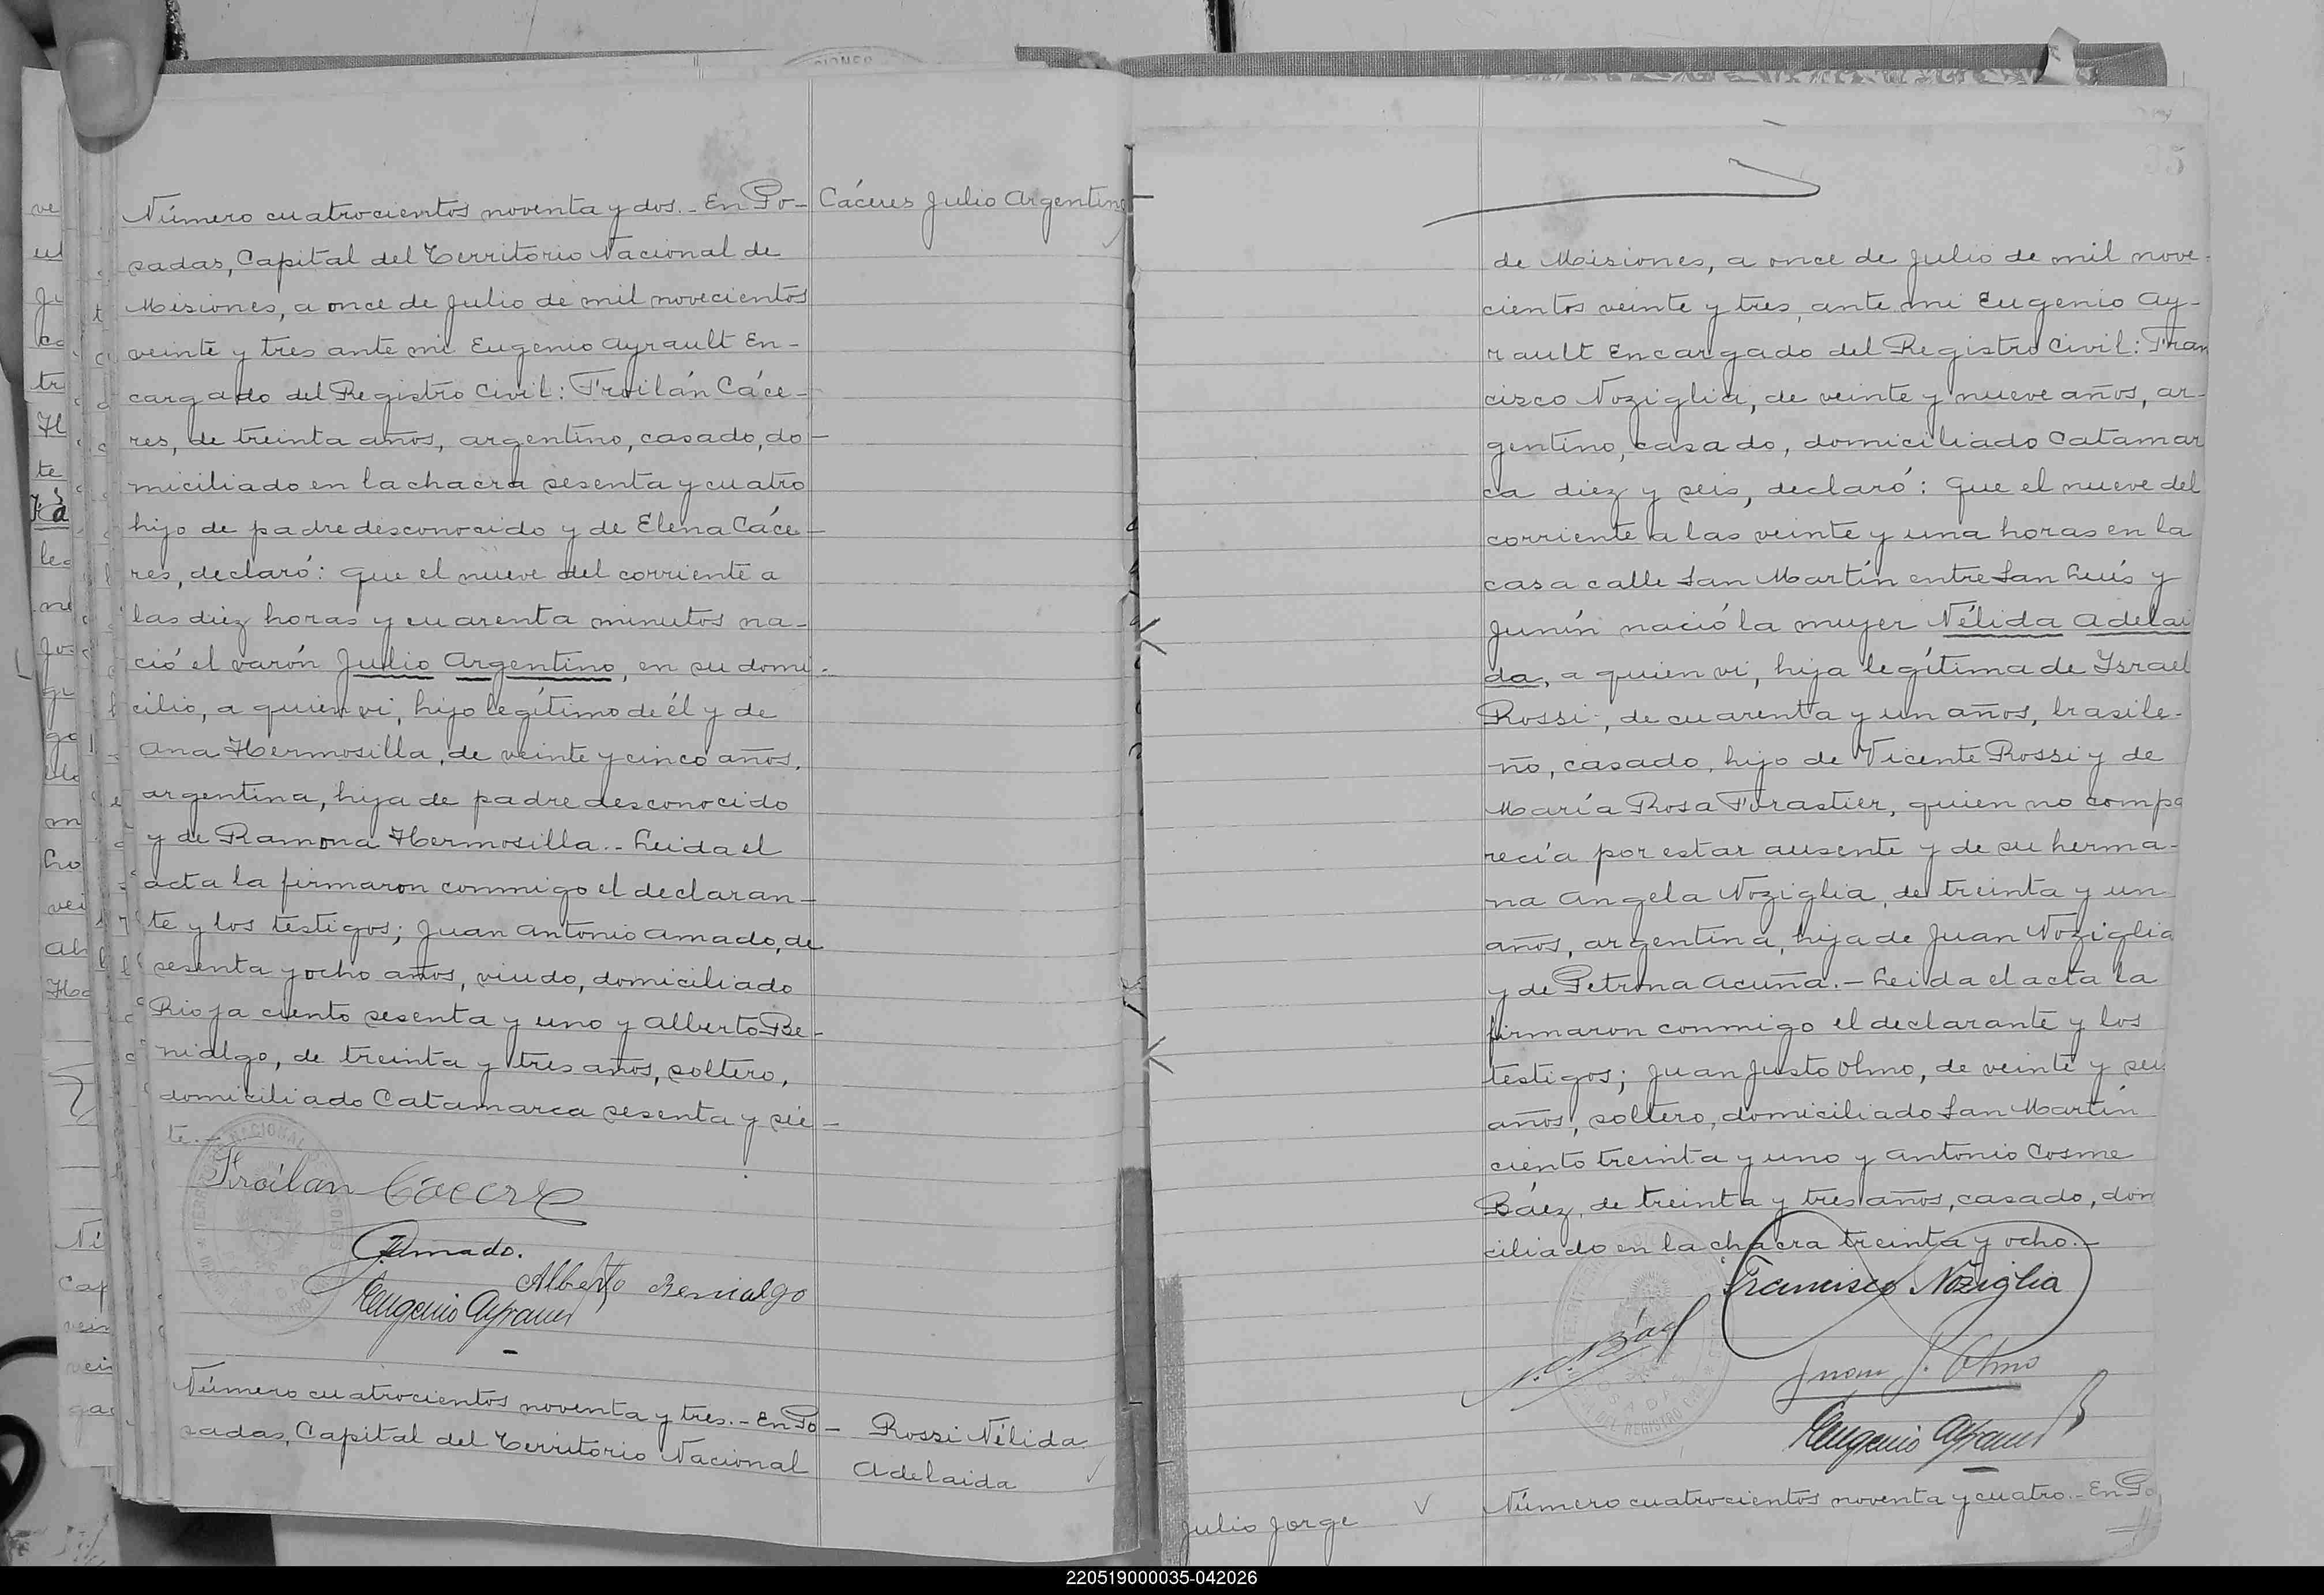 Número cuatrocientos noventa y dos.- En Po-
sadas, Capital del Territorio Nacional de
Misiones, a once de Julio de mil novecientos
veinte y tres ante mi Eugenio Ayrault En-
cargado del Registro Civil: Froilán Cáce-
res, de treinta años, argentino, casado, do-
miciliado en la chacra sesenta y cuatro
hijo de padre desconocido y de Elena Cáce-
res, declaró: Que el nueve del corriente a
las diez horas y cuarenta minutos na-
ció el varón Julio Argentino, en su domi-
cilio, a quien vi, hijo legítimo de él y de
Ana Hermosilla, de veinte y cinco años,
argentina, hija de padre desconocido
y de Ramona Hermosilla.- Leida el
acta la firmaron conmigo el declaran-
te y los testigos; Juan Antonio Amado, de
sesenta y ocho años, viudo, domiciliado
Rioja ciento sesenta y uno y Alberto Be-
nialgo, de treinta y tres años, soltero,
domiciliado Catamarca sesenta y sie-
te.-
Froilan Cáceres
J. Amado.
Alberto Benialgo
Eugenio Ayrault
Cáceres Julio Argentino
Número cuatrocientos noventa y tres.- En Po-
sadas, Capital del Territorio Nacional
Rossi Nélida
Adelaida
de Misiones, a once de Julio de mil nove-
cientos veinte y tres, ante mi Eugenio Ay-
rault Encargado del Registro Civil: Fran
cisco Noziglia, de veinte y nueve años, ar-
gentino, casado, domiciliado Catamar
ca diez y seis, declaró: Que el nueve del
corriente a las veinte y una horas en la
casa calle San Martín entre San Luís y
Junín nació la mujer Nélida Adelai
da, a quien vi, hija legítima de Israel
Rossi, de cuarenta y un años, brasile-
ño, casado, hijo de Vicente Rossi y de
María Rosa Furastier, quien no compa
recía por estar ausente y de su herma-
na Angela Noziglia, de treinta y un
años, argentina, hija de Juan Noziglia
y de Petrona Acuña.- Leida el acta la
firmaron conmigo el declarante y los
testigos; Juan Justo Olmo, de veinte y seis
años, soltero, domiciliado San Martín
ciento treinta y uno y Antonio Cosme
Báez, de treinta y tres años, casado, dom
ciliado en la chacra treinta y ocho.-
Francisco Noziglia
Juan J. Olmo
Eugenio Ayrault
Número cuatrocientos noventa y cuatro.- En Po
Julio Jorge
220519000035-042026